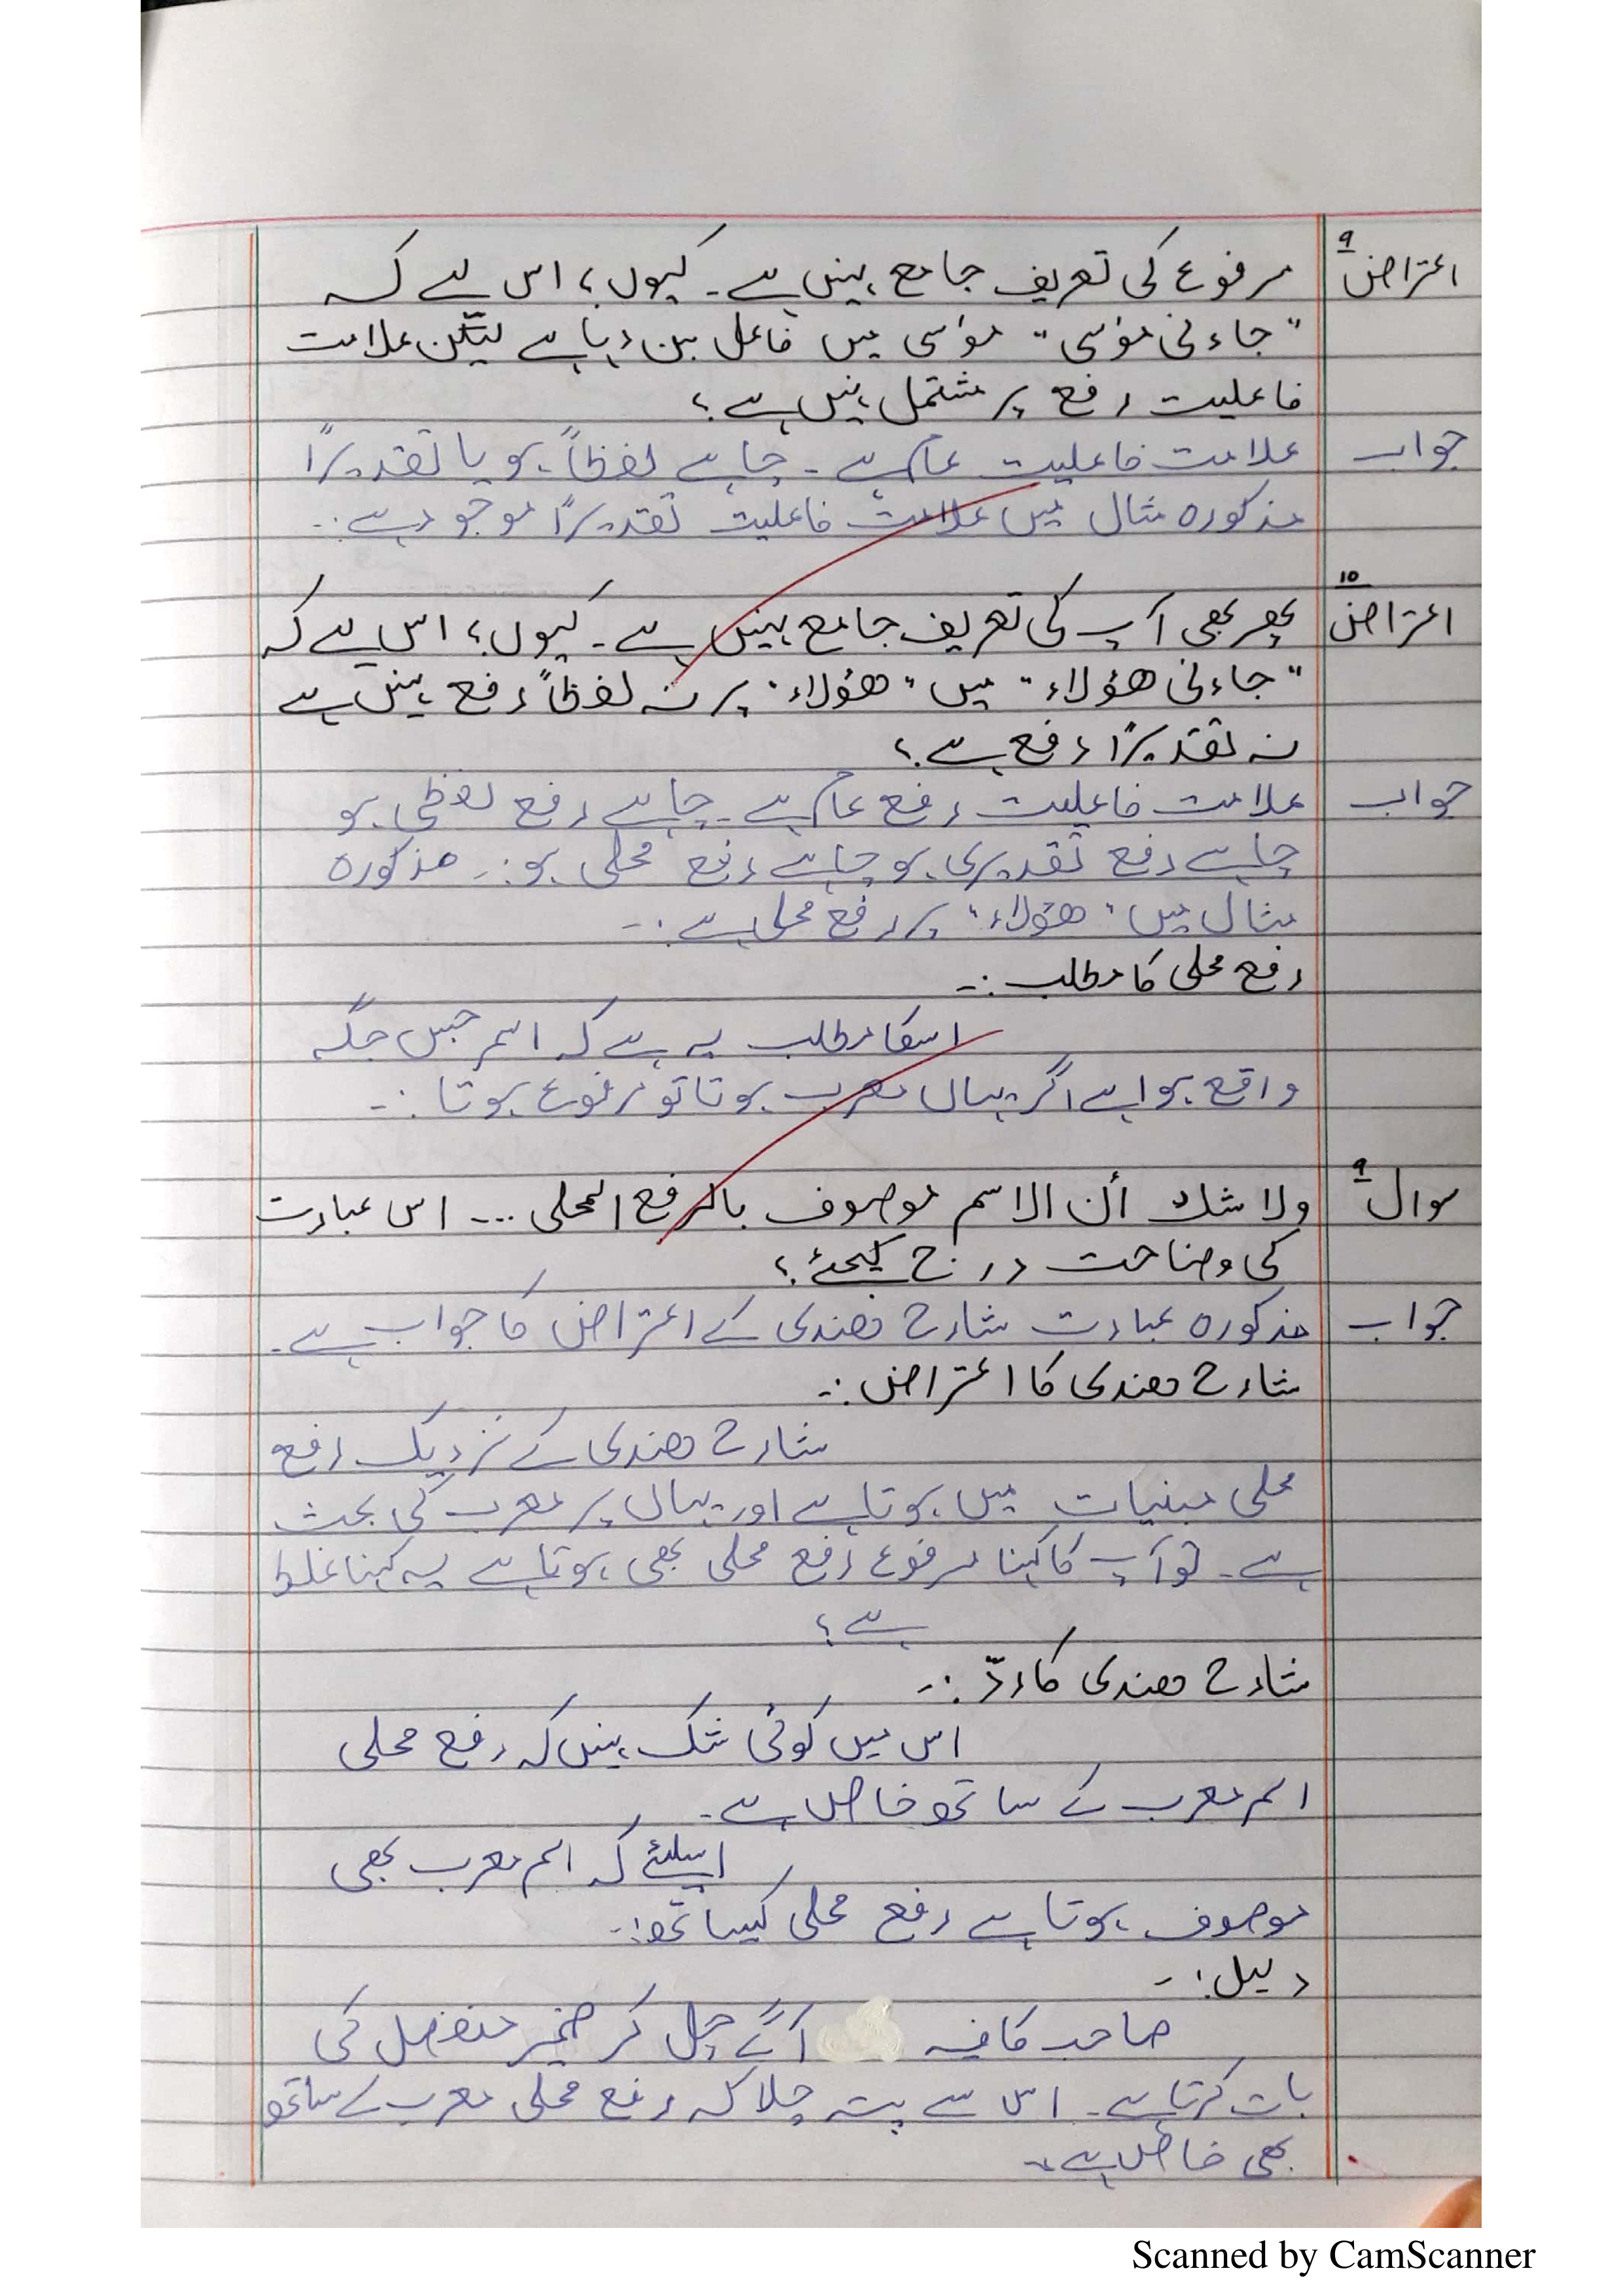 اعتراض ۹ مرفوع کی تعریف جامع نہیں ہے۔ کیوں؟ اس لیے کہ
"جاءنی موسٰی" موسٰی میں فاعل بن رہا ہے لیکن علامت
فاعلیت رفع پر مشتمل نہیں ہے؟
جواب علامت فاعلیت عام ہے۔ چاہے لفظاً ہو یا تقدیرًا
مذکورہ مثال میں علامت فاعلیت تقدیرًا موجود ہے:۔
اعتراض ۱۰ پھر بھی آپ کی تعریف جامع نہیں ہے۔ کیوں؟ اس لیے کہ
"جاءنی ھؤلاء" میں "ھؤلاء" پر نہ لفظاً رفع نہیں ہے
نہ تقدیرًا رفع ہے؟
جواب علامت فاعلیت رفع عام ہے۔ چاہے رفع لفظی ہو
چاہے رفع تقدیری ہو چاہے رفع محلی ہو:۔ مذکورہ
مثال میں "ھؤلاء" پر رفع محلی ہے:۔
رفع محلی کا مطلب:۔
اسکا مطلب یہ ہے کہ اسم جس جگہ
واقع ہوا ہے اگر یہاں معرب ہوتا تو مرفوع ہوتا:۔
سوال ۹ ولا شك أن الاسم موصوف بالرفع المحلی ... اس عبارت
کی وضاحت درج کیجئے؟
جواب مذکورہ عبارت شارح ھندی کے اعتراض کا جواب ہے۔
شارح ھندی کا اعتراض:۔
شارح ھندی کے نزدیک رفع
محلی مبنیات میں ہوتا ہے اور یہاں پر معرب کی بحث
ہے۔ تو آپ کا کہنا مرفوع رفع محلی بھی ہوتا ہے یہ کہنا غلط
ہے؟
شارح ھندی کا ردّ:۔
اس میں کوئی شک نہیں کہ رفع محلی
اسم معرب کے ساتھ خاص ہے۔
اسلئے کہ اسم معرب بھی
موصوف ہوتا ہے رفع محلی کیساتھ:۔
دلیل:۔
صاحب کافیہ آگے چل کر ضمیر منفصل کی
بات کرتا ہے۔ اس سے پتہ چلا کہ رفع محلی معرب کے ساتھ
بھی خاص ہے۔
Scanned by CamScanner